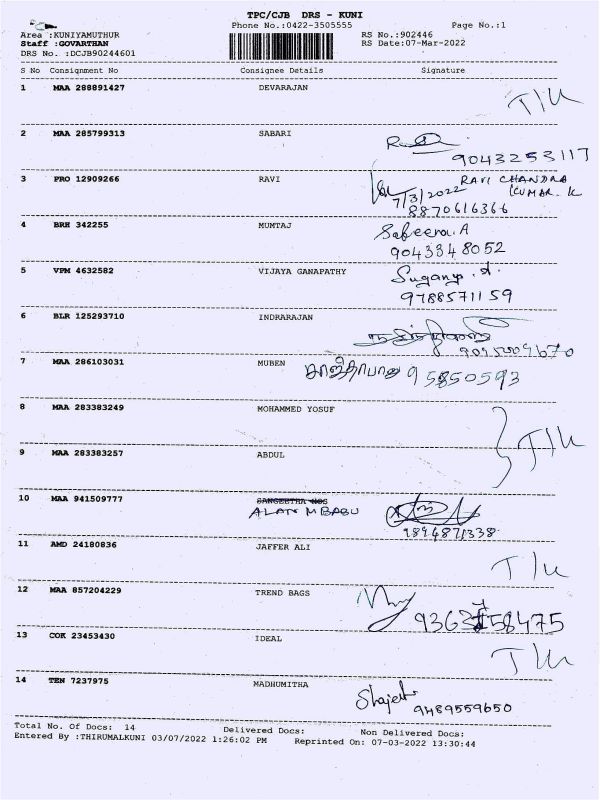 TPC/CJB DRS - KUNI
Phone No.:0422-3505555 Page No.:1
Area :KUNIYAMUTHUR RS No.:902446
Staff :GOVARTHAN RS Date:07-Mar-2022
DRS No. :DCJB90244601
S No Consignment No Consignee Details Signature
1 MAA 288891427 DEVARAJAN
T/U
2 MAA 285799313 SABARI
9043253117
3 PRO 12909266 RAVI RAVI CHANDRA
7/3/2022 KUMAR. K
8870616366
4 BRH 342255 MUMTAJ Sabeera.A
9043348052
5 VPM 4632582 VIJAYA GANAPATHY
9788571159
6 BLR 125293710 INDRARAJAN
7 MAA 286103031 MUBEN 95850593
8 MAA 283383249 MOHAMMED YOSUF
T/U
9 MAA 283383257 ABDUL
10 MAA 941509777 SANGEETHA
ALAN MBABU
9894871338
11 AMD 24180836 JAFFER ALI
T/U
12 MAA 857204229 TREND BAGS
13 COK 23453430 IDEAL
T/U
14 TEN 7237975 MADHUMITHA
9489559650
Total No. Of Docs: 14 Delivered Docs: Non Delivered Docs:
Entered By :THIRUMALKUNI 03/07/2022 1:26:02 PM Reprinted On: 07-03-2022 13:30:44